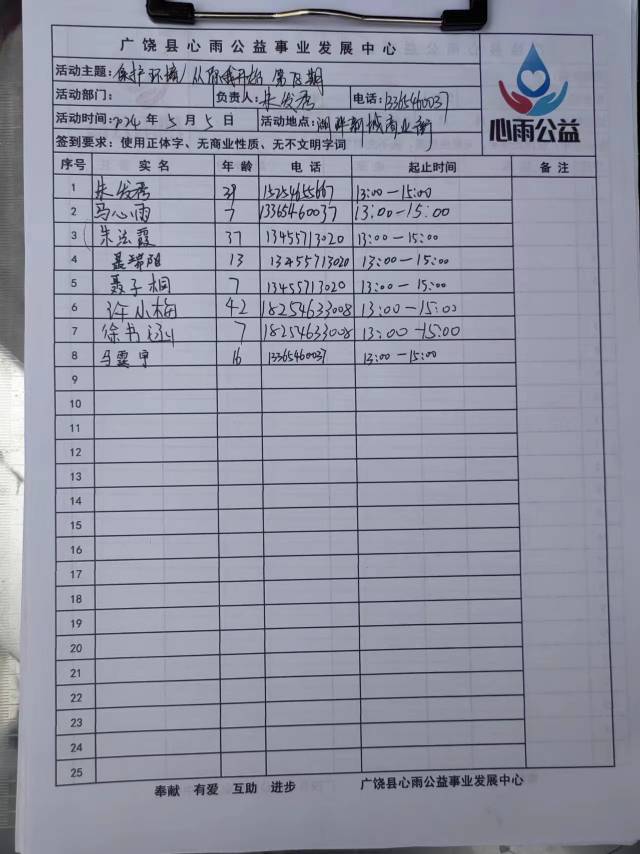 广饶县心雨公益事业发展中心
活动主题：保护环境 从你我开始 第 期
活动部门： 负责人：朱发秀 电话：13365460037
活动时间：2024年5月5日 活动地点：湖畔新城商业街
心雨公益
签到要求：使用正体字、无商业性质、无不文明字词
序号 实名 年龄 电话 起止时间 备注
1 朱发秀 39 15254655667 13:00—15:00
2 马心雨 7 13365460037 13:00—15:00
3 朱法霞 37 13455713020 13:00—15:00
4 聂瑞阳 13 13455713020 13:00—15:00
5 聂子桐 7 13455713020 13:00—15:00
6 许小梅 42 18254633008 13:00—15:00
7 徐书涵 7 18254633008 13:00—15:00
8 马雲宇 16 13365460037 13:00—15:00
9
10
11
12
13
14
15
16
17
18
19
20
21
22
23
24
25
奉献 有爱 互助 进步 广饶县心雨公益事业发展中心